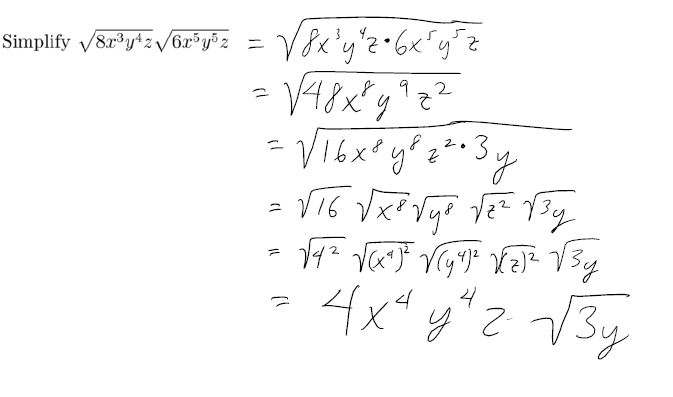 Simplify √(8x³y⁴z)√(6x⁵y⁵z) = √(8x³y⁴z·6x⁵y⁵z)
= √(48x⁸y⁹z²)
= √(16x⁸y⁸z²·3y)
= √16 √x⁸ √y⁸ √z² √3y
= √4² √(x⁴)² √(y⁴)² √(z)² √3y
= 4x⁴y⁴z √3y